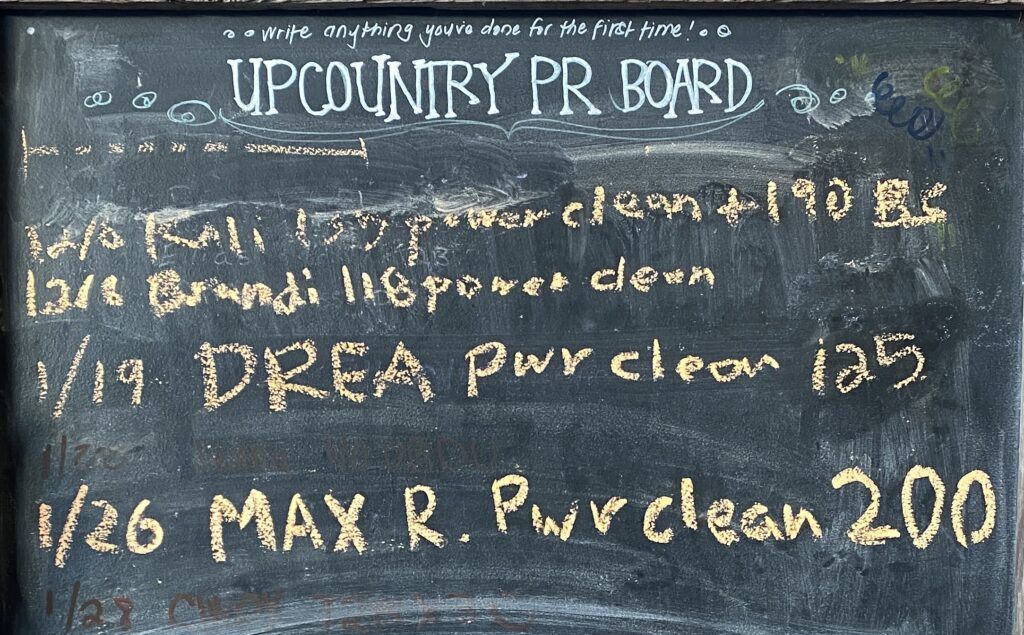 write anything you've done for the first time!
UPCOUNTRY PR BOARD
Kali power clean + 190 BS
Brandi 118 power clean
1/19 DREA pwr clean 125
1/26 MAX R. Pwr clean 200
1/28